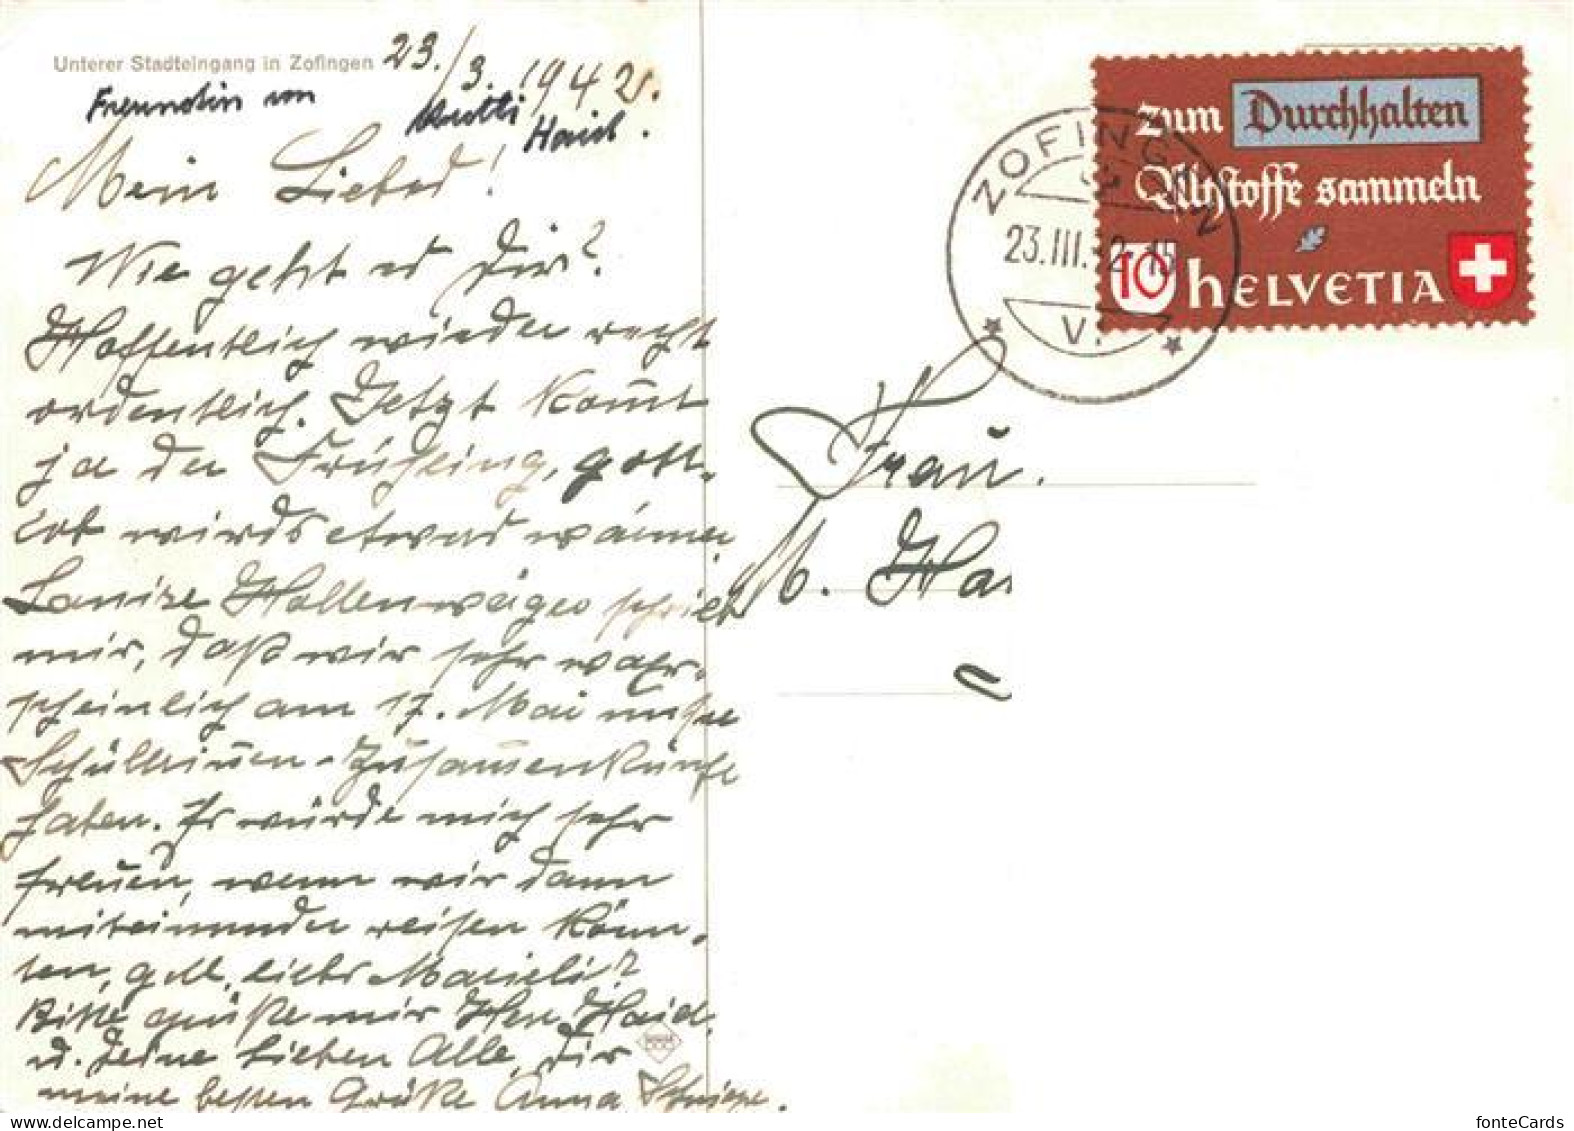 Unterer Stadteingang in Zofingen 23./3. 1942.
Freundin von Ruthli Haid.
Mein Liebes!
Wie geht es Dir?
Hoffentlich wieder recht
ordentlich. Jetzt kom̅t
ja der Frühling, gott-
lob wirds etwas wärmer.
Hallenweger schrieb
mir, daß wir sehr wahr-
scheinlich am 17. Mai unsere
Schülerinnen-Zusam̅enkunft
haben. Es würde mich sehr
freuen, wenn wir dann
miteinander reisen könn-
ten, gell, liebs Marieli?
Bitte grüße mir Herr Haid,
u. Deine lieben Alle, Dir
meine besten Grüße Anna
zum Durchhalten
Altstoffe sammeln
10 HELVETIA
ZOFINGEN
23.III.42-15
V.
Frau.
M. Ha
fonteCards